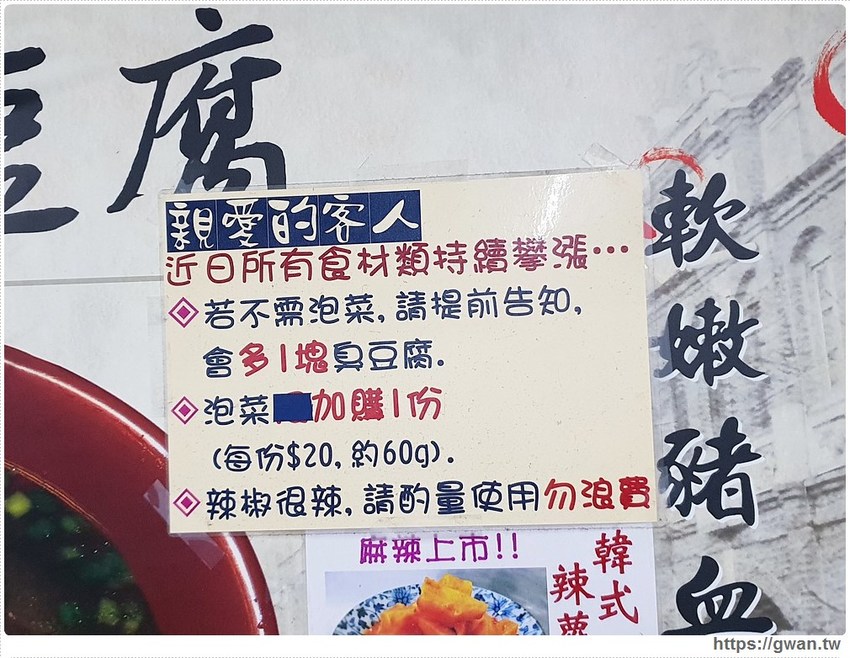 豆腐
親愛的客人
近日所有食材類持續攀漲…
若不需泡菜,請提前告知,
會多1塊臭豆腐.
泡菜加購1份
(每份$20,約60g).
辣椒很辣,請酌量使用勿浪費
麻辣上市!!
韓式
辣
軟嫩豬血
https://gwan.tw